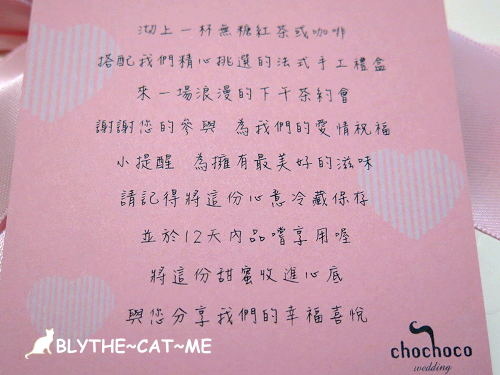 沏上一杯無糖紅茶或咖啡
搭配我們精心挑選的法式手工禮盒
來一場浪漫的下午茶約會
謝謝您的參與 為我們的愛情祝福
小提醒 為擁有最美好的滋味
請記得將這份心意冷藏保存
並於12天內品嚐享用喔
將這份甜蜜收進心底
與您分享我們的幸福喜悅
chochoco
wedding
BLYTHE~CAT~ME